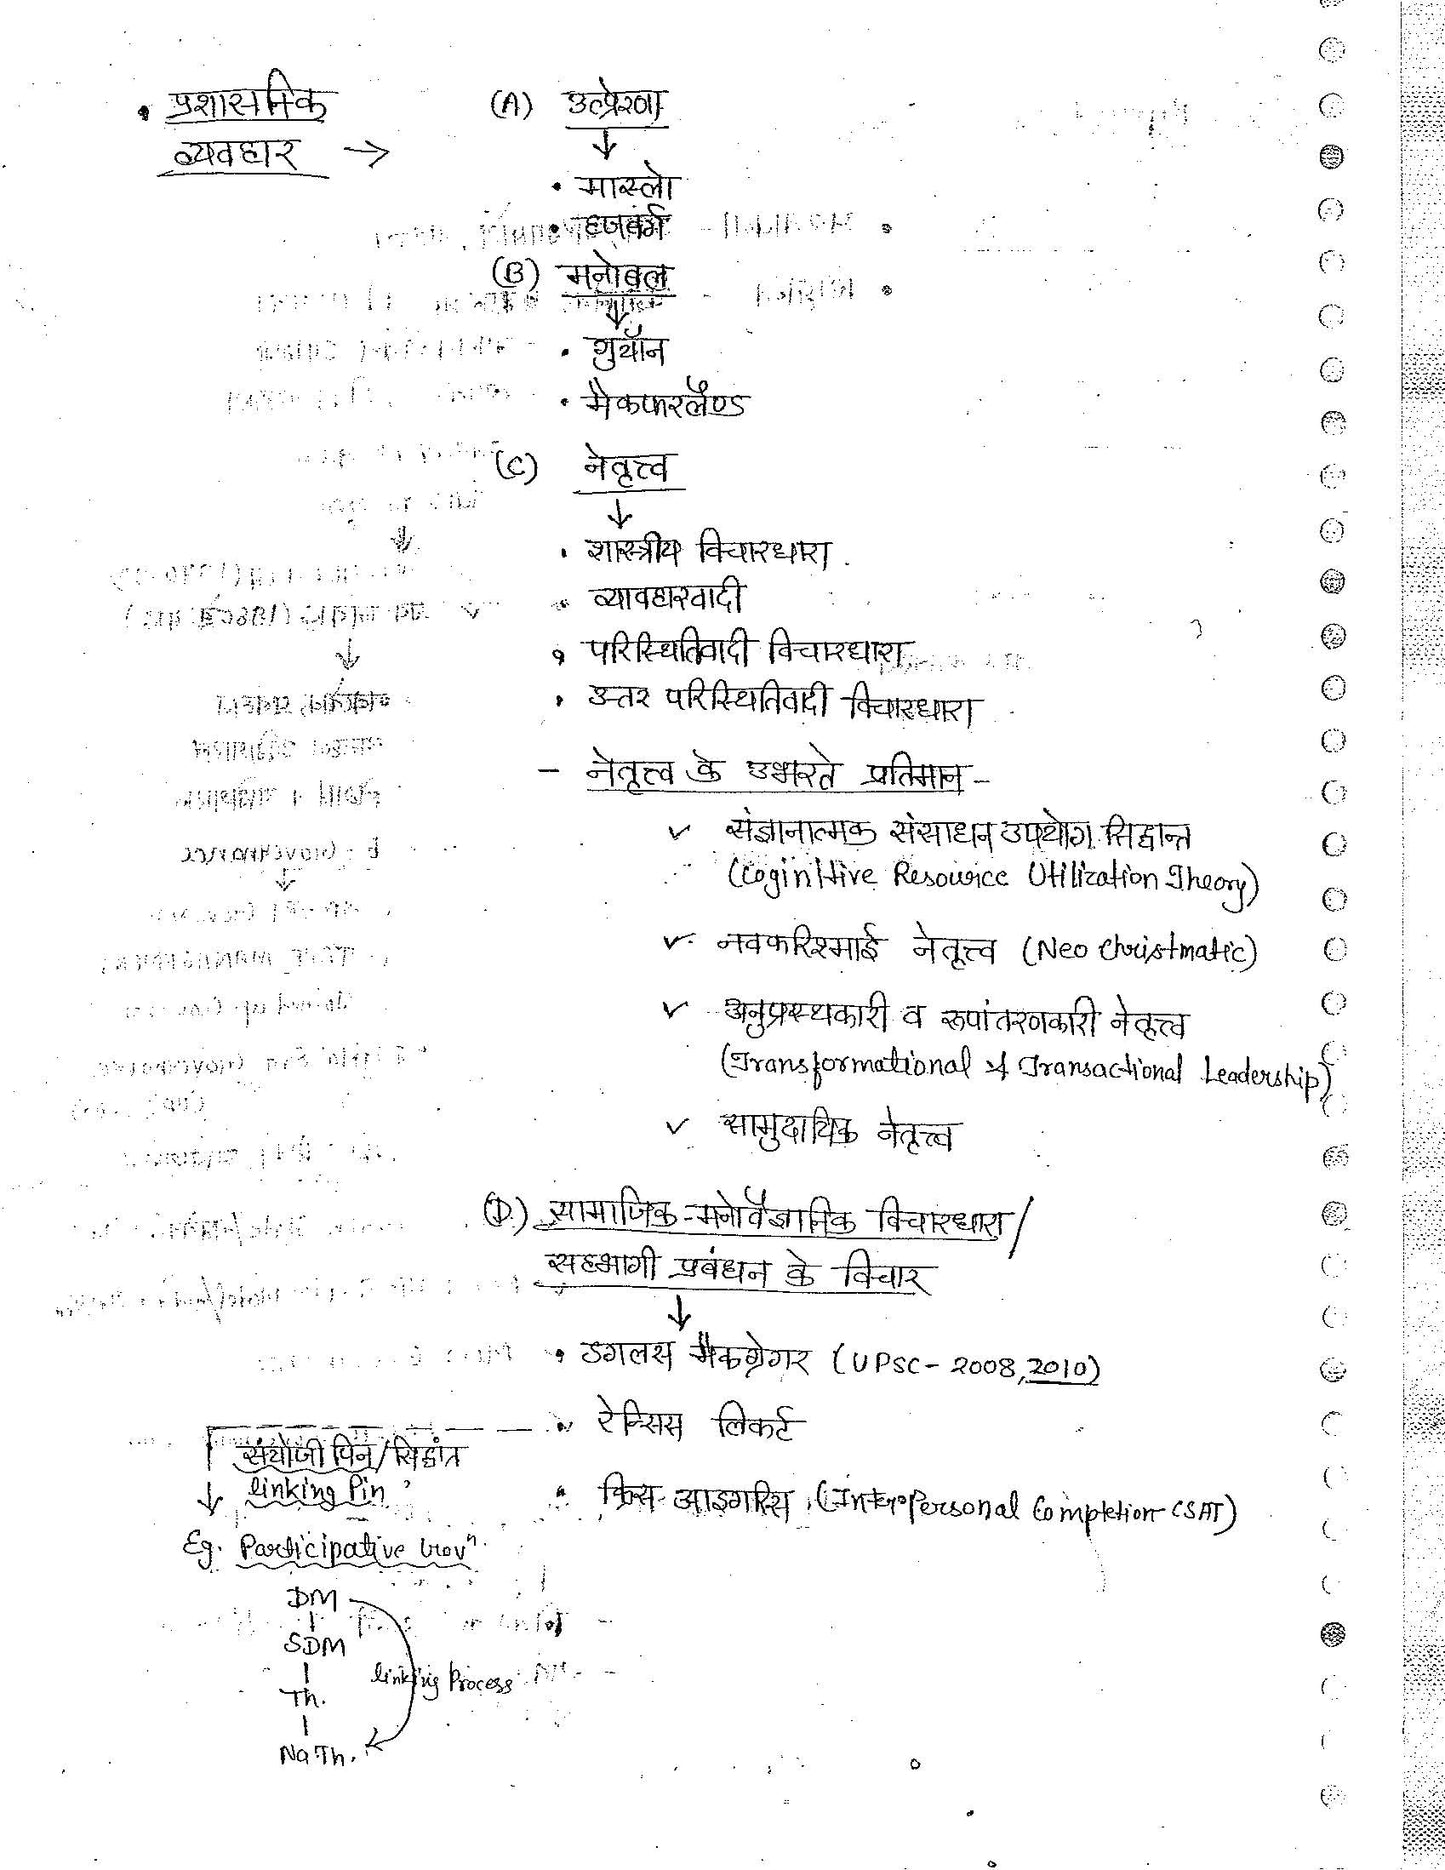 • प्रशासनिक
व्यवहार →
(A) उत्प्रेरणा
↓
• मास्लो
• हर्जबर्ग
(B) मनोबल
↓
• गुयॉन
• मैकफरलैण्ड
(C) नेतृत्त्व
↓
• शास्त्रीय विचारधारा
• व्यावहारवादी
• परिस्थितिवादी विचारधारा
• उत्तर परिस्थितिवादी विचारधारा
- नेतृत्त्व के उभरते प्रतिमान -
✓ संज्ञानात्मक संसाधन उपयोग सिद्वान्त
(Coginitive Resource Utilization Theory)
✓ नवकरिश्माई नेतृत्त्व (Neo Christmatic)
✓ अनुप्रस्थकारी व रूपांतरणकारी नेतृत्त्व
(Transformational & Transactional Leadership)
✓ सामुदायिक नेतृत्त्व
(D) सामाजिक-मनोवैज्ञानिक विचारधारा/
सहभागी प्रबंधन के विचार
↓
• डगलस मैकग्रेगर (UPSC- 2008, 2010)
• रेन्सिस लिकर्ट
संयोजी पिन/सिद्धांत
linking Pin
• क्रिस आइगरिस (Inter Personal Completion CSAT)
Eg. Participative Govⁿ.
DM
SDM
linking Process
Th.
Na Th.